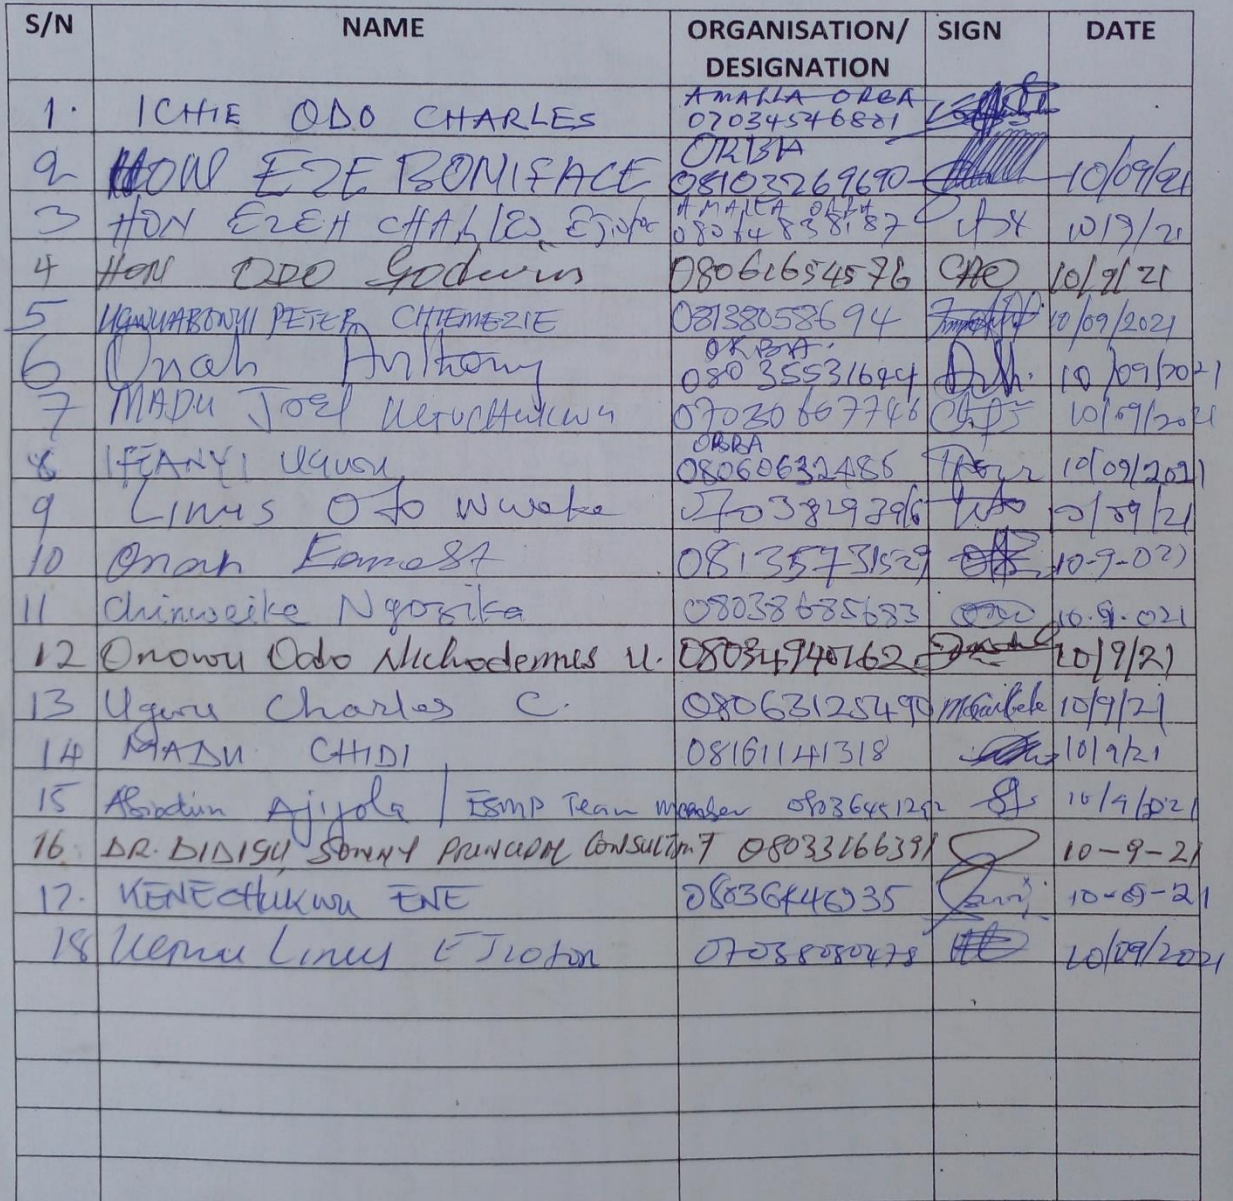 S/N NAME ORGANISATION/ DESIGNATION SIGN DATE
1. ICHIE ODO CHARLES AMALLA ORBA 07034546881
2 HON EZE BONIFACE ORBA 08103269690 10/09/21
3 HON EZEH CHARLES AMALLA ORBA 08064838187 10/9/21
4 HON ODO Godwin 08061654576 10/9/21
5 UGWUABONYI PETER CHIEMEZIE 08138058694 10/09/2021
6 Onah Anthony ORBA. 08035531644 10/09/2021
7 MADU Joel Uchechukwu 07030667746 10/09/2021
8 IFEANYI Ugwu ORBA 08060632485 10/09/2021
9 LINUS Odo Nweke 0703829396 10/09/21
10 Onah Earnest 08135731529 10-9-021
11 Chinweike Ngozika 08038685683 10.9.021
12 Onowu Odo Nichodemus U. 08034940162 10/9/21
13 Ugwu Charles C. 08063125490 10/9/21
14 MADU CHIDI 08161141318 10/9/21
15 Abiodun Ajiyola / ESMP Team member 10/9/2021
16 DR. DIDIGU SONNY PRINCIPAL CONSULTANT 08033166391 10-9-21
17. KENECHUKWU ENE 08036446935 10-09-21
18 Linus 07038080478 10/09/2021